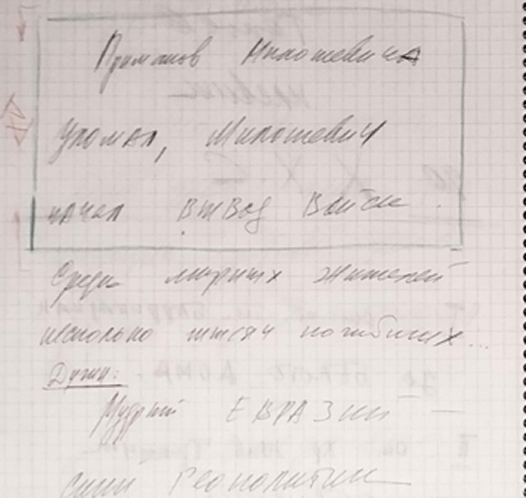 Примаков Милошевича
Уломал, Милошевич
начал вывод войск.
Среди мирных жителей
несколько тысяч погибших...
Думы:
Мудрый ЕВРАЗИЙ —
Геополитик